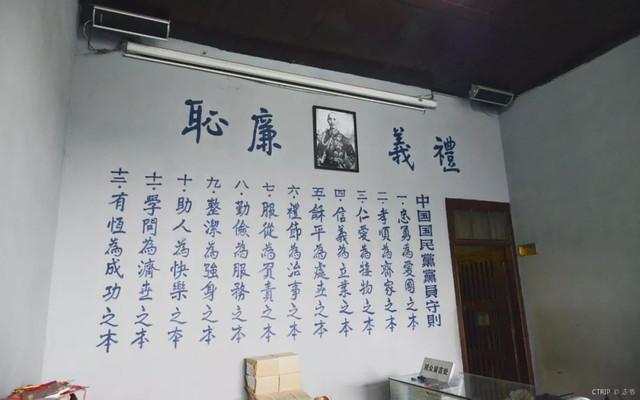 禮義廉恥
中国国民黨黨員守則
一·忠勇為愛國之本
二·孝順為齊家之本
三·仁愛為接物之本
四·信義為立業之本
五·龢平為處世之本
六·禮節為治事之本
七·服從為負責之本
八·勤儉為服務之本
九·整潔為強身之本
十·助人為快樂之本
十一·學問為濟世之本
十二·有恆為成功之本
CTRIP